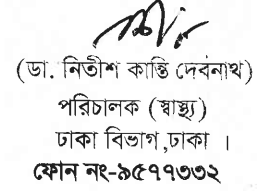 (ডা. নিতীশ কান্তি দেবনাথ)
পরিচালক (স্বাস্থ্য)
ঢাকা বিভাগ,ঢাকা ।
ফোন নং-৯৫৭৭৩৩২